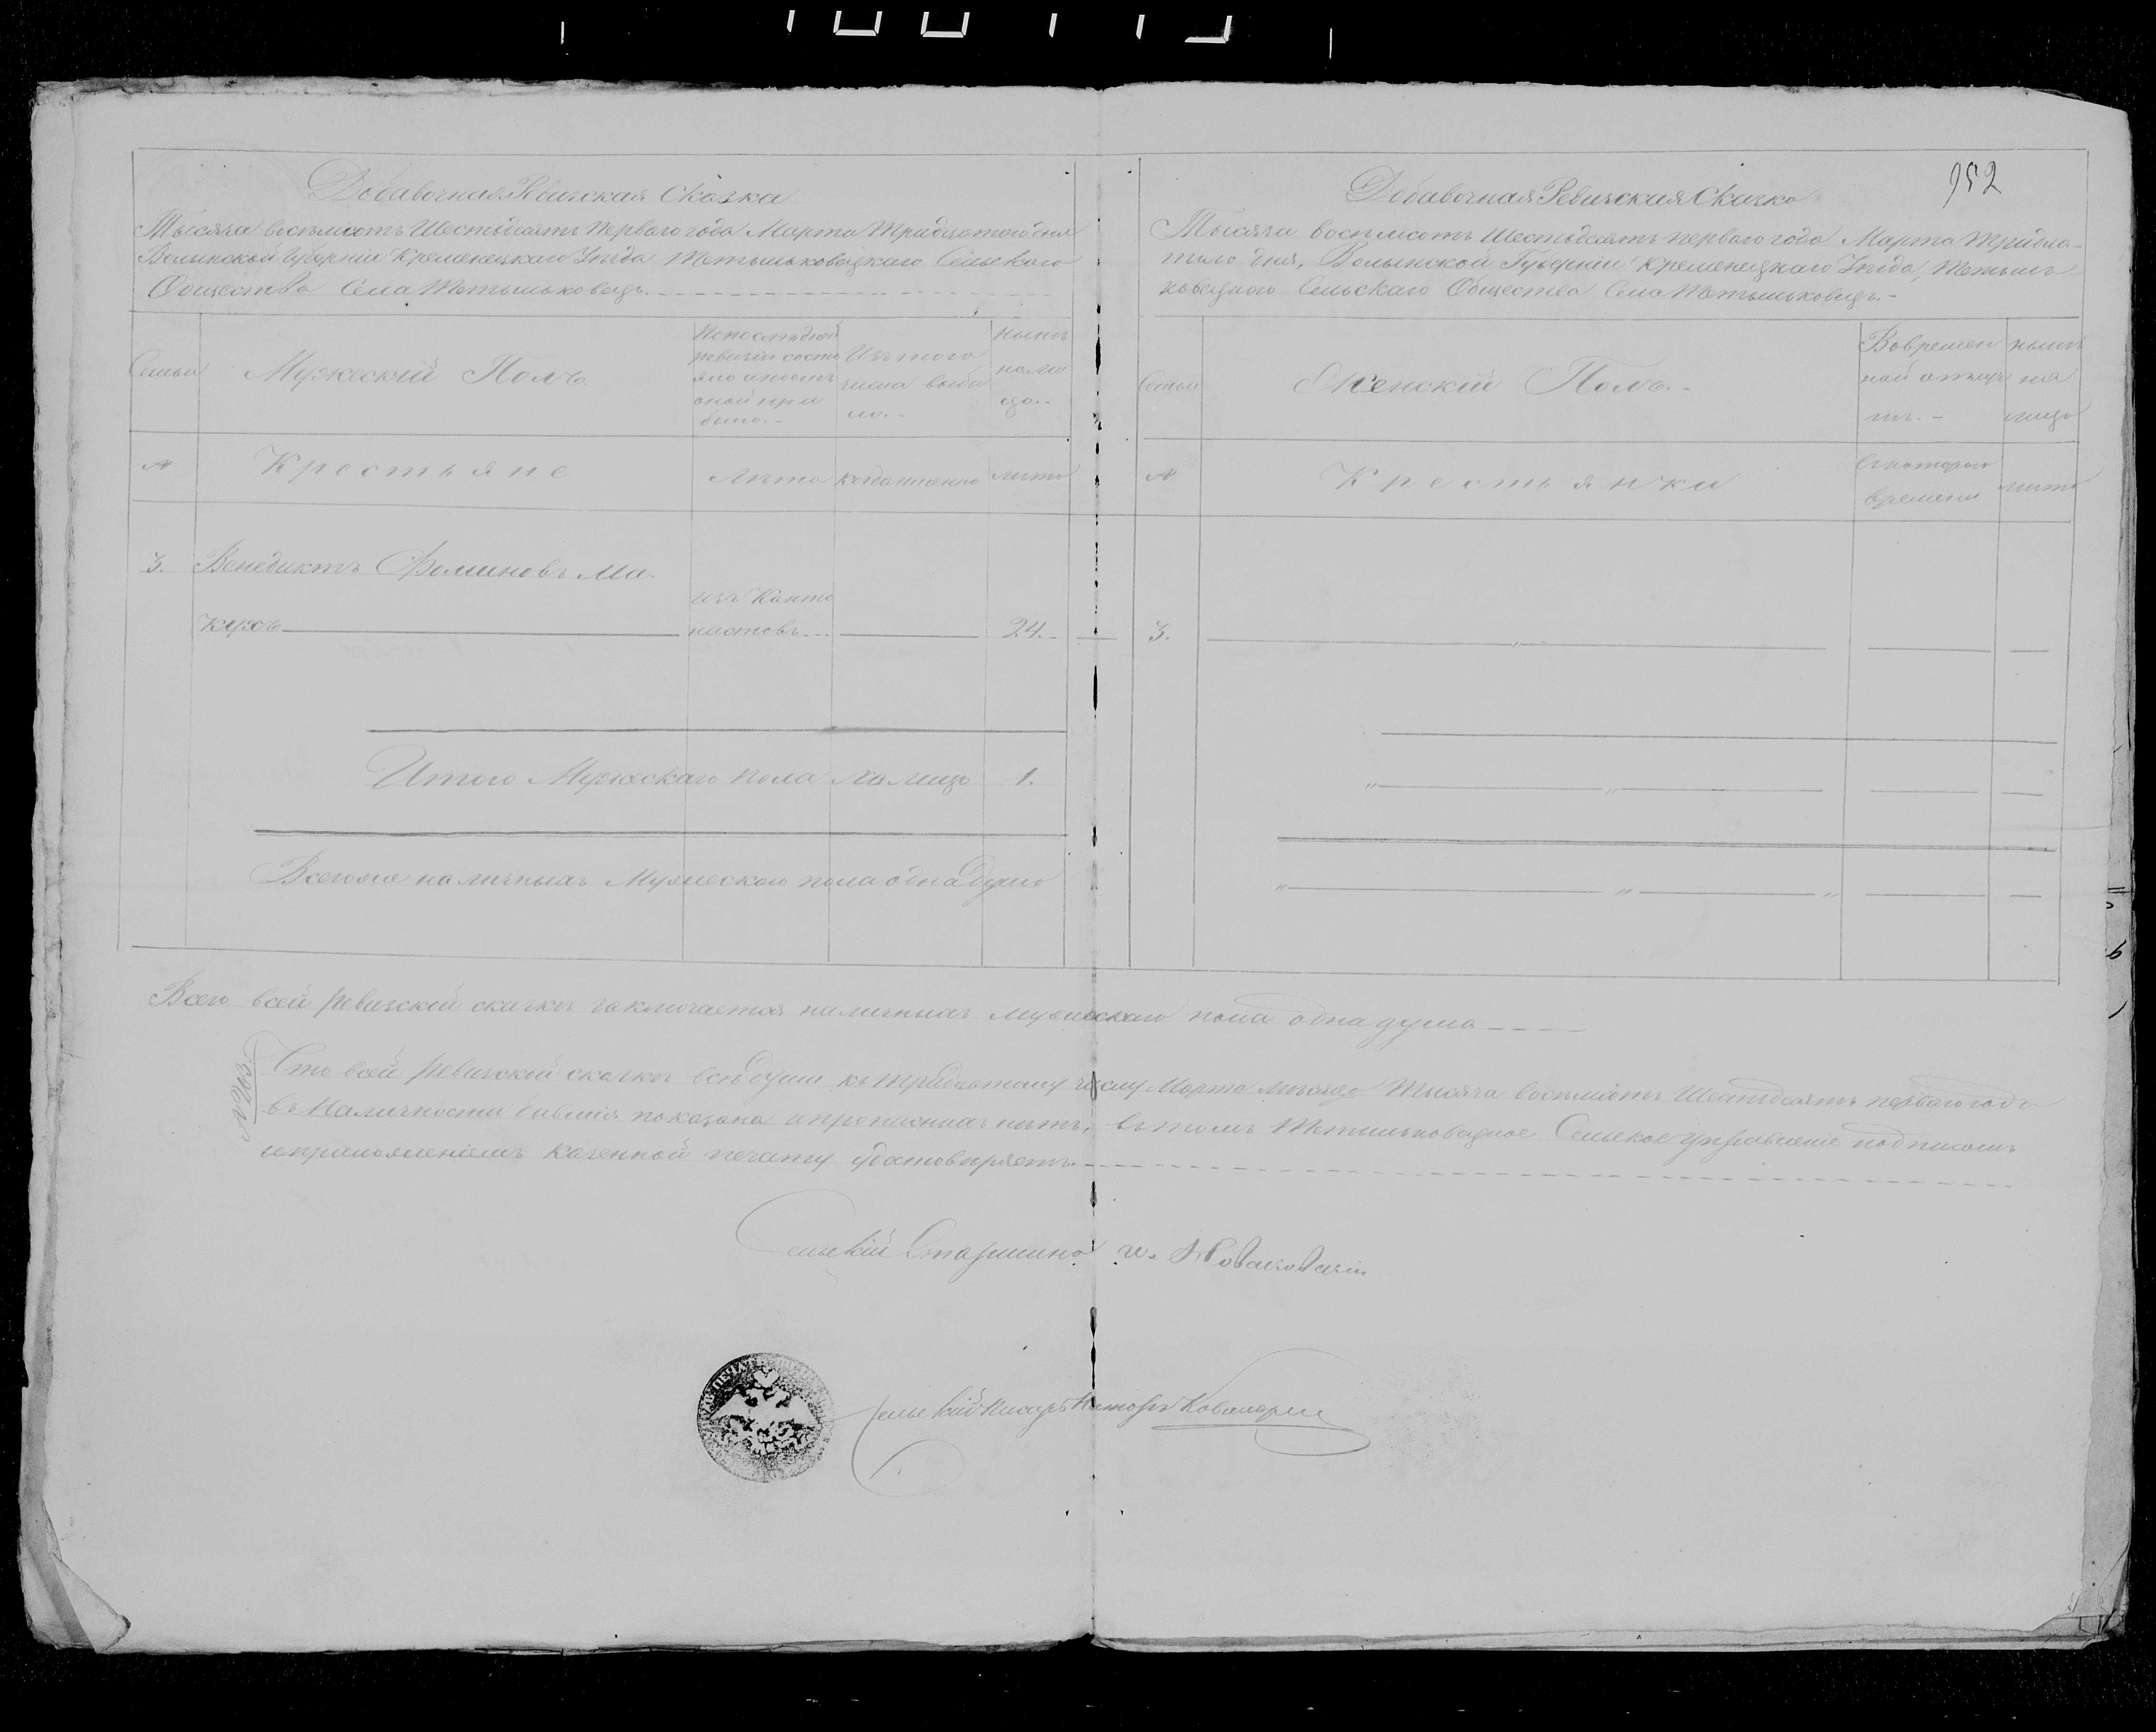 Добавочная Ревизская Сказка
Тысяча восемьсотъ Шестьдесятъ Перваго года Марта Тридцатого дня
Волынской Губерніи Кременецкаго Уезда Тетыльковецкаго Сельскаго
Общества Села Тетыльковецъ.
Семьи
Мужескій Полъ
Попоследней
ревизіи состо
яло ипослѣ
оной при
было.
Изъ того
числа выбы
ло.
нынѣ
на ли
цо.
№
Крестьяне
Лѣта
когда именно
лѣта
3.
Венедиктъ Фоминовъ Ма-
кухъ
изъ Канто
нистовъ
24.
Итого Мужескаго пола на лицо 1.
Всего же наличныхъ Мужескаго пола одна душа
952
Добавочная Ревизская Сказка
Тысяча восемьсотъ Шестьдесятъ перваго года Марта Тридца-
таго дня, Волынской Губерніи Кременецкаго Уезда, Тетыль
ковецкаго Сельскаго Общества Села Тетыльковецъ.
Семьи
Женскій Полъ.
Вовремен
ной отлуч
кѣ.
нынѣ
на
лицо
№
Крестьянки
Съ котораго
времени
лѣта
3.
Всего всей ревизской сказкѣ заключается наличныхъ мужескаго пола одна душа
№ 203
Что всей ревизской сказкѣ всѣ души къ тридцатому числу Марта мѣсяца Тысяча восемьсотъ Шестьдесятъ перваго года
въ Наличности бывшія показана ипрописныхъ нѣтъ, въ томъ Тетыльковецкое Сельское Управленіе подписомъ
иприложеніемъ казенной печати удостовѣряетъ.
Сельскій Старшина И. Новаковскій
Сельскій Писарь